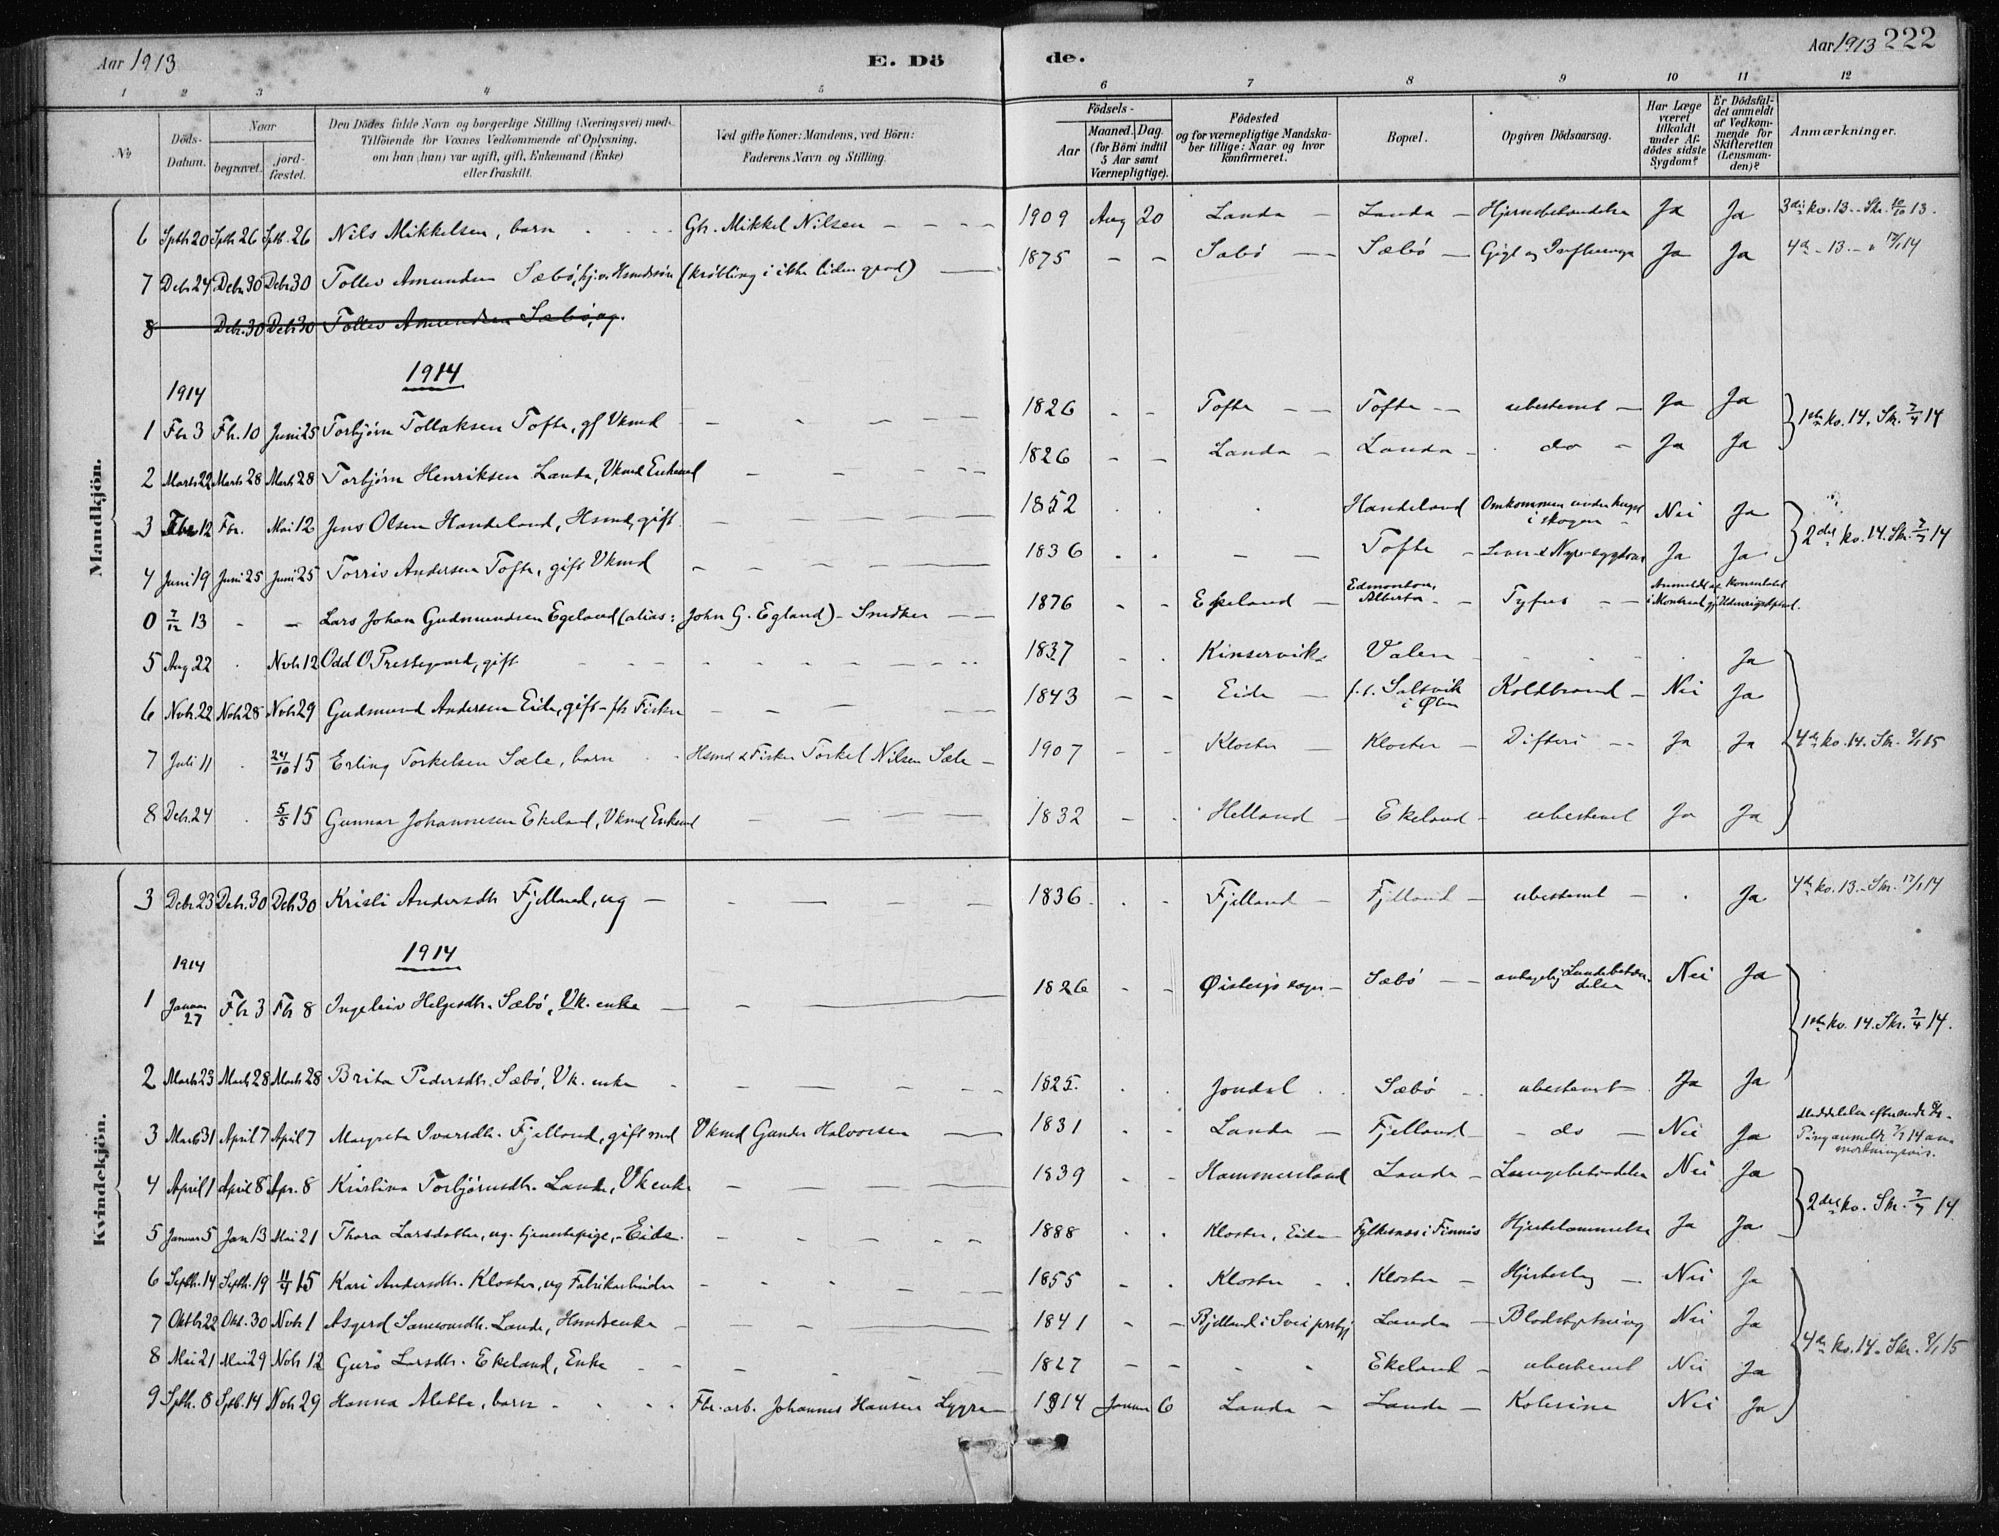 Aar 1913
E. Dö de.
Aar 1913 222
1 2 3 4 5 6 7 8 9 10 11 12
No
Döds-Datum.
Naar
begravet.
jord-fæstet.
Den Dödes fulde Navn og borgerlige Stilling (Næringsvei) med
Tilföiende for Voxnes Vedkommende af Oplysning,
om han (hun) var ugift, gift, Enkemand (Enke)
eller fraskilt.
Ved gifte Koner: Mandens, ved Börn:
Faderens Navn og Stilling.
Födsels-
Aar
Maaned. Dag.
(for Börn indtil
5 Aar samt
Værnepligtige).
Födested
og for værnepligtige Mandska-
ber tillige: Naar og hvor
konfirmeret.
Bopæl.
Opgiven Dödsaarsag.
Har Læge
været
tilkaldt
under Af-
dödes sidste
Sygdom?
Er Dödsfal-
det anmeldt
af Vedkom-
mende for
Skifteretten
(Lensman-
den)?
Anmærkninger.
Mandkjön.
6 Septb 20 Septb 26 Septb. 26 Nils Mikkelsen, barn Gb. Mikkel Nilsen 1909 Aug 20 Landa Landa Hjernebetændelse Ja Ja 3die kv. 13 - Skr. 10/10 13.
7 Debr 24 Debr 30 Debr 30 Tollev Amundsen Sæbø, hj.v. Hsmdssøn (krøbling i ikke liden grad) 1875 Sæbø Sæbø Gigt og Influenza Ja Ja 4de - 13 - " 17/1 14
8 Debr. 30 Debr 30 Tollev Amundsen Sæbø, ug.
1914
1914
1 Fbr 3 Fbr. 10 Juni 25 Torbjørn Tollaksen Tofte, gf Vkmd 1826 Tofte Tofte ubestemt Ja Ja 1ste kv. 14. Skr. 7/4 14
2 Marts 22 Marts 28 Marts 28 Torbjørn Henriksen Landa, Vkmd Enkemd 1826 Landa Landa do Ja Ja
3 Fbr 12 Fbr. Mai 12 Jens Olsen Handeland, Hsmd, gift 1852 Handeland Omkommen under hugst i skogen Nei Ja 2det kv. 14. Skr. 7/7 14
4 Juni 19 Juni 25 Juni 25 Torris Andersen Tofte, gift Vkmd 1836 Tofte Lever & Nyre-sygdom Ja Ja
0 7/12 13 Lars Johan Gudmundsen Egeland (alias: John G. Egland) - Snedker 1876 Ekeland Edmonton, Alberta Tyfus Anmeldt af Konsulatet i Montreal gj Udenrigsdptmt.
5 Aug 22 Novb 12 Odd O Prestegaard, gift 1837 Kinservik Valen Ja
6 Novb. 22 Novb 28 Novb 29 Gudmund Andersen Eide, gift - fh Fisker 1843 Eide f.t. Saltvik i Ølen Koldbrand Nei Ja
7 Juli 11 24/10 15 Erling Torkelsen Sæle, barn Hsmd & Fisker Torkel Nilsen Sæle 1907 Kloster Kloster Difteri Ja Ja 4de kv. 14. Skr. 9/1 15
8 Debr. 24 5/5 15 Gunnar Johannesen Ekeland, Vkmd Enkemd 1832 Helland Ekeland ubestemt Ja Ja
Kvindekjön.
3 Debr 23 Debr. 30 Debr 30 Kristi Andersdtr Fjelland, ug 1836 Fjelland Fjelland ubestemt Ja 4de kv. 13 - Skr. 17/1 14
1914
1914
1 Januar 27 Fbr 3 Fbr 8 Ingeleiv Helgesdtr. Sæbø, Vk. enke 1826 Øistesjø sogn Sæbø antagelig Lungebetændelse Nei Ja 1ste kv. 14. Skr. 7/4 14.
2 Marts 23 Marts 28 Marts 28 Brita Pedersdtr. Sæbø, Vk. enke 1825. Jondal Sæbø ubestemt Ja Ja
3 Marts 31 April 7 April 7 Margreta Ivarsdtr. Fjelland, gift med Vkmd Gunder Halvorsen 1831 Landa Fjelland do Nei Ja
4 April 1 April 8 Apr. 8 Kristina Torbjørnsdtr. Landa, Vk enke 1839 Hammersland Landa Lungebetændelse Nei Ja 2det kv. Skr. 7/7 14
5 Januar 5 Jan 13 Mai 21 Thora Larsdatter, ug. tjenestepige, - Eide 1888 Kloster, Eide Fylkesnæs i Finnås Hjertelammelse Ja Ja
6 Septb. 14 Septb. 19 11/4 15 Kari Andersdtr. Kloster, ug Fabrikarbeider 1855 Kloster Kloster Hjerteslag Nei Ja
7 Oktb 22 Okt. 30 Novb 1 Asgerd Samsonsdtr. Landa, Hsmdsenke 1841 Bjelland i Svei prstgj Landa Blodstyrtning Nei Ja 4de kv. 14. Skr. 9/1 15
8 Mai 21 Mai 29 Novb 12 Guro Larsdtr. Ekeland, Enke 1827 Ekeland ubestemt Nei Ja
9 Septb. 8 Septb. 14 Novb 29 Hanna Aletta, barn Fbr. arb. Johannes Hansen Lygre 1914 Januar 6 Landa Landa Kolerine Nei Ja